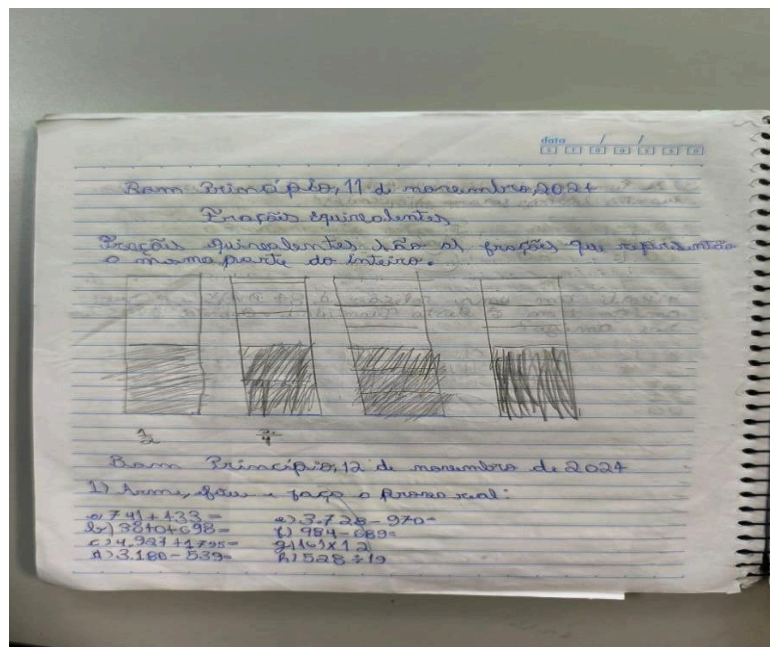 data / /
Bom Princípio, 11 de novembro, 2024
Frações equivalentes
Frações equivalentes são as frações que representão
a mesma parte do inteiro.
1/2 2/4
Bom Princípio, 12 de novembro de 2024
1) Arme, efetue e faça a prova real:
a) 741 + 133 =
b) 3840 + 698 =
c) 4.927 + 1795 =
d) 3.180 - 539 =
e) 3.728 - 970 =
f) 984 - 689 =
g) 161 x 12
h) 528 ÷ 19